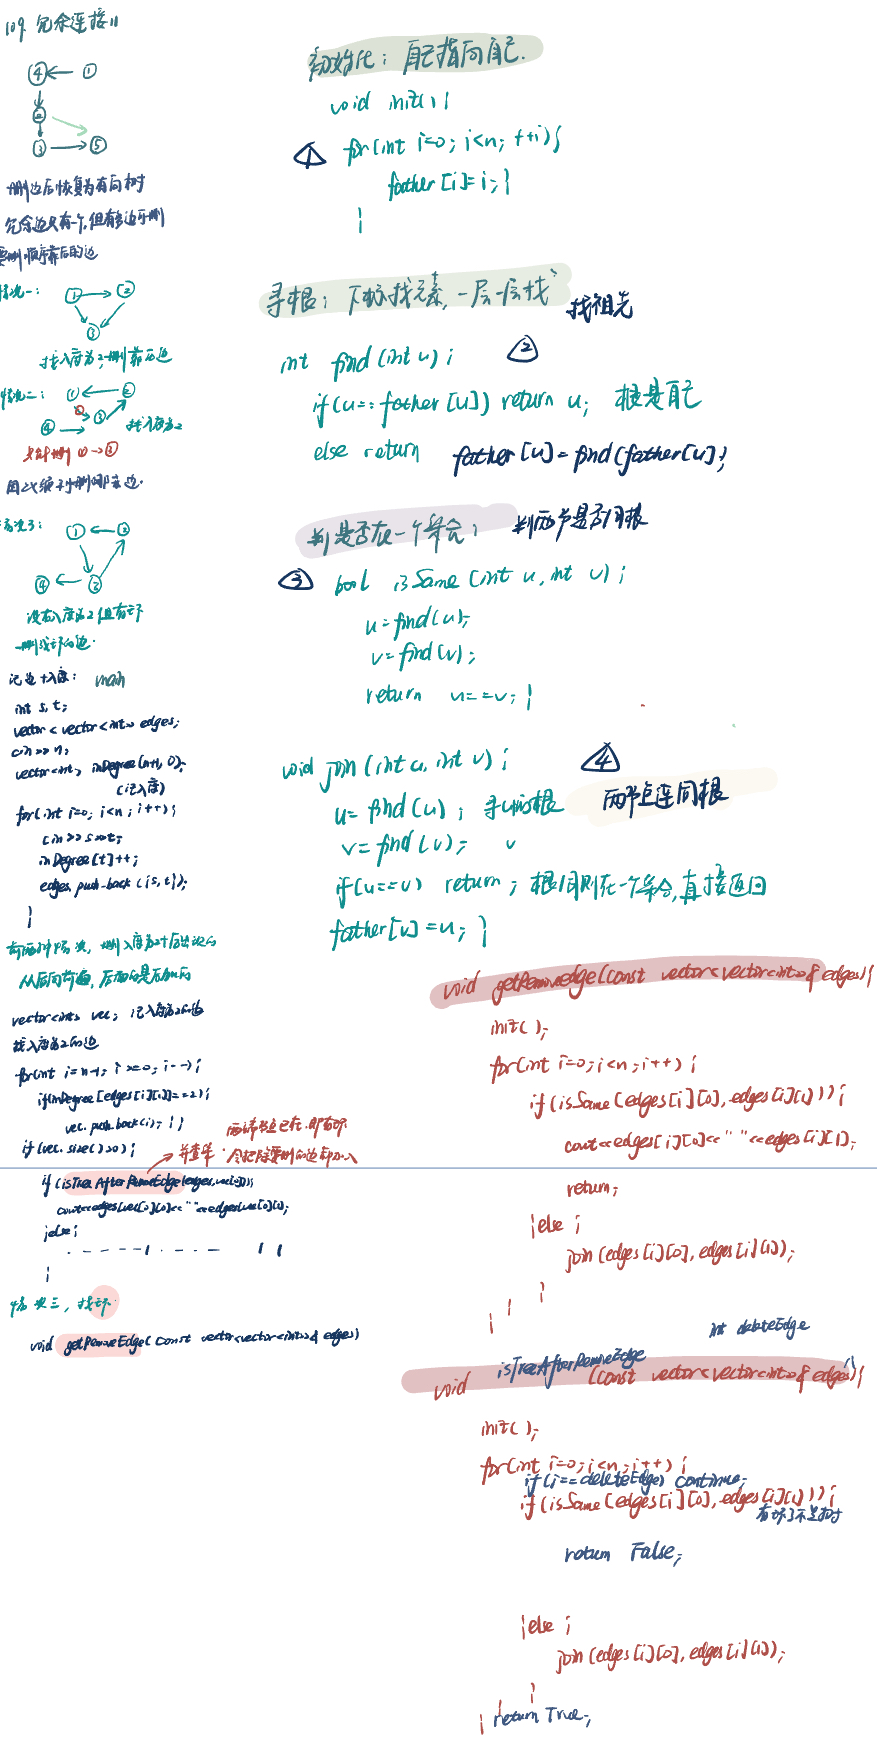 109. 冗余连接II
④ ← ①
②
③ → ⑤
删边后恢复为有向树
冗余边只有一个,但有多边可删
要删顺序靠后的边
情况一:
① → ②
③
找入度为2,删靠后边
情况二:
① ← ②
④ → ③
找入度为2
只能删 ① → ③
情况三:
① ← ③
④ ← ②
没有入度为2但有环
删成环的边.
记边+入度: main
int s,t;
vector<vector<int>> edges;
cin >> n;
vector<int> inDegree(n+1, 0);
(记入度)
for(int i=0; i<n; i++){
cin >> s >> t;
inDegree[t]++;
edges.push_back({s, t});
}
前两种情况, 删入度为2中后出现的
从后向前遍,
vector<int> vec; 记入度为2的边
找入度为2的边
for(int i=n-1; i>=0; i--){
if(inDegree[edges[i][1]]==2){
vec.push_back(i); } }
if(vec.size()>0){
两端节点已在,即有环
并查集:
if(isTreeAfterRemoveEdge(edges,vec[0])){
cout<<edges[vec[0]][0]<<" "<<edges[vec[0]][1];
}else{
}
情况三, 找环
void getRemoveEdge(const vector<vector<int>>& edges)
初始化: 自己指向自己.
void init(){
① for(int i=0; i<n; ++i){
father[i]=i; }
}
寻根: 下标找元素, 一层一层找
找祖先
int find(int u){ ②
if(u==father[u]) return u; 根是自己
else return father[u]=find(father[u]);
判是否在一个集合: 判两节点是否同根
③ bool isSame(int u, int v){
u=find(u);
v=find(v);
return u==v; }
void join(int u, int v){ ④
u=find(u); 寻u的根 两节点连同根
v=find(v); v
if(u==v) return; 根同则在一个集合,直接返回
father[v]=u; }
void getRemoveEdge(const vector<vector<int>>& edges){
init();
for(int i=0; i<n; i++){
if(isSame(edges[i][0], edges[i][1])){
cout<<edges[i][0]<<" "<<edges[i][1];
return;
}else{
join(edges[i][0], edges[i][1]);
}
}
}
int deleteEdge
void isTreeAfterRemoveEdge (const vector<vector<int>>& edges){
init();
for(int i=0; i<n; i++){
if(i==deleteEdge) continue;
if(isSame(edges[i][0], edges[i][1])){
有环了不是树
return False;
}else{
join(edges[i][0], edges[i][1]);
}
} return True;
}